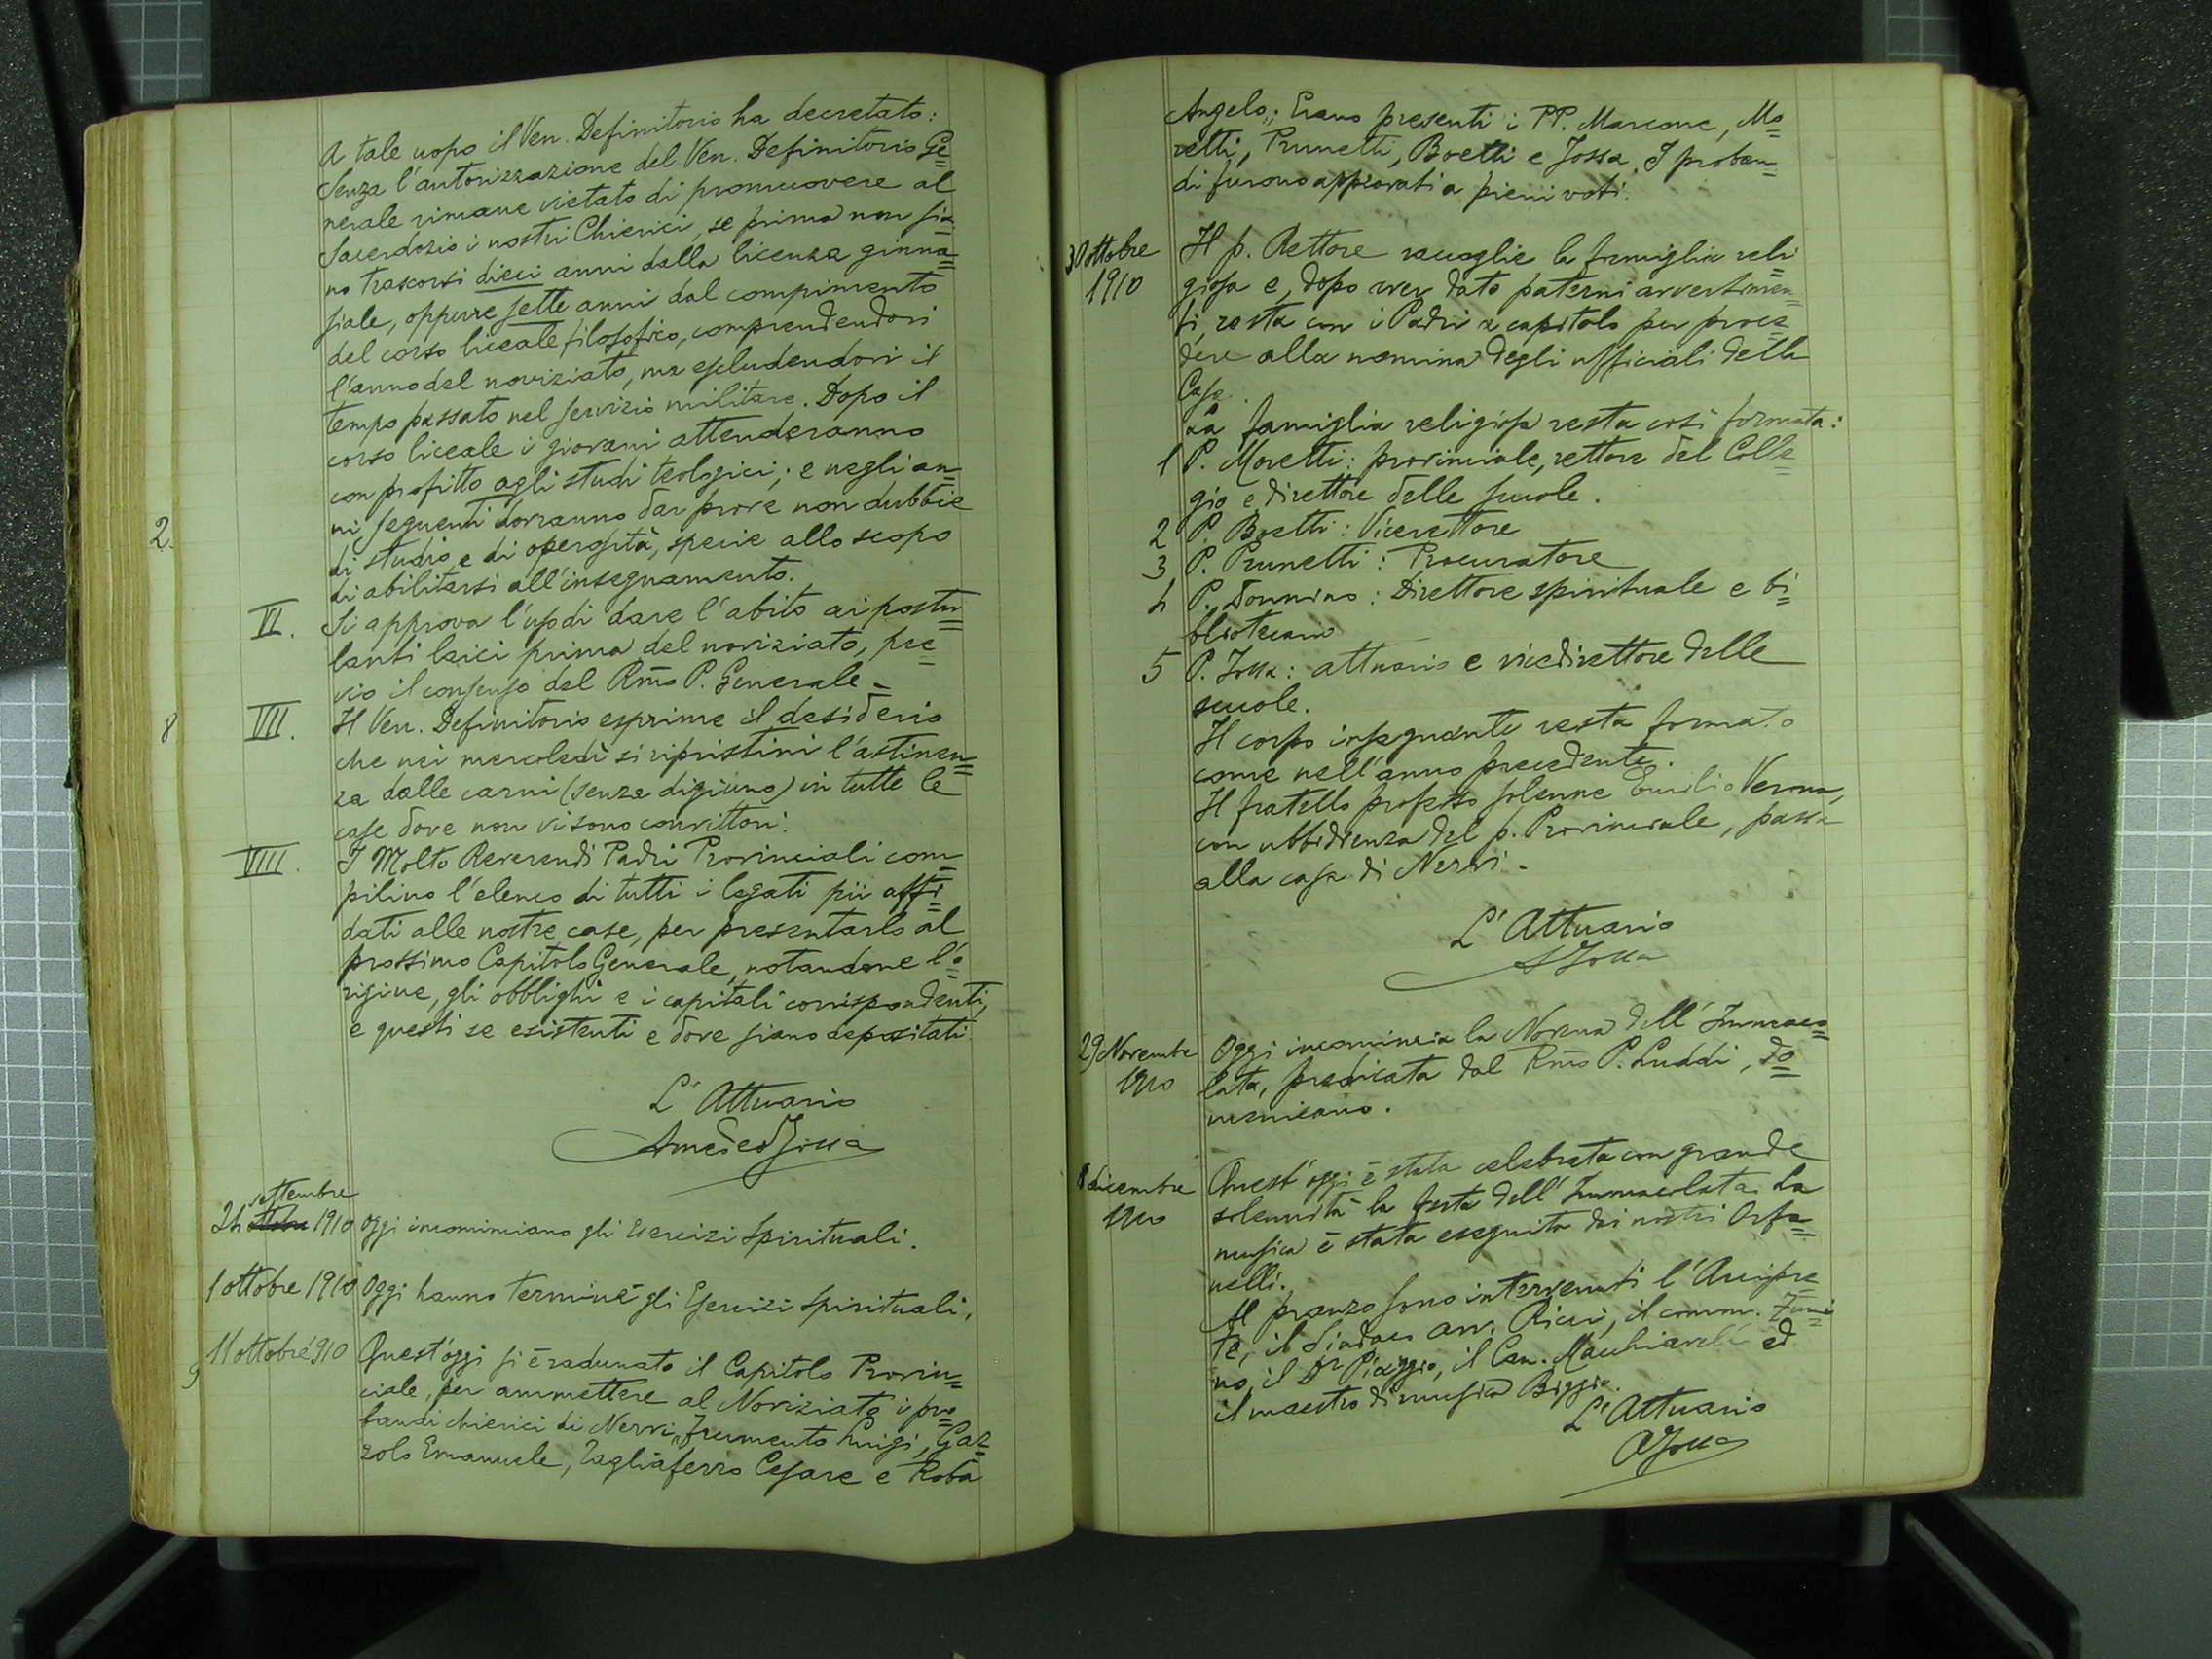 A tale uopo il Ven. Definitorio ha decretato:
Senza l'autorizzazione del Ven. Definitorio Ge=
nerale rimane vietato di promuovere al
Sacerdozio i nostri Chierici, se prima non sia=
no trascorsi dieci anni dalla licenza ginna=
siale, oppure sette anni dal compimento
del corso liceale filosofico, comprendendovi
l'anno del noviziato, ma escludendovi il
tempo passato nel servizio militare. Dopo il
corso liceale i giovani attenderanno
con profitto agli studi teologici; e negli an=
ni seguenti dovranno dar prove non dubbie
2. di studio e di operosità, specie allo scopo
di abilitarsi all'insegnamento.
VI. Si approva l'uso di dare l'abito ai postu=
lanti laici prima del noviziato, pre=
vio il consenso del Rmo P. Generale.=
8 VII. Il Ven. Definitorio esprime il desiderio
che nei mercoledì si ripristini l'astinen=
za dalle carni (senza digiuno) in tutte le
case dove non vi sono convittori.
VIII. I Molto Reverendi Padri Provinciali com=
pilino l'elenco di tutti i legati pii affi=
dati alle nostre case, per presentarlo al
prossimo Capitolo Generale, notandone l'o=
rigine, gli obblighi e i capitali corrispondenti,
e questi se esistenti e dove siano depositati.
L'Attuario
Amedeo Jossa
settembre
24 ottobre 1910 Oggi incominciano gli Esercizi Spirituali.
1 ottobre 1910 Oggi hanno termine gli Esercizi Spirituali.
11 ottobre 910 Quest'oggi si è radunato il Capitolo Provin=
9 ciale, per ammettere al Noviziato i pro=
bandi chierici di Nervi, "Frumento Luigi, Gaz=
zolo Emanuele, Tagliaferro Cesare e Roba
Angelo"; Erano presenti i PP. Marcone, Mo=
retti, Prunetti, Boetti e Jossa. I proban=
di furono approvati a pieni voti.
30 ottobre Il p. Rettore raccoglie la famiglia reli=
1910 giosa e, dopo aver dato paterni avvertimen=
ti, resta con i Padri a capitolo per proce=
dere alla nomina degli ufficiali della
Casa.
La famiglia religiosa resta così formata:
1 P. Moretti: provinciale, rettore del Colle=
gio e direttore delle scuole.
2 P. Boetti: Vicerettore
3 P. Prunetti: Procuratore
4 P. Donnino: Direttore spirituale e bi=
bliotecario
5 P. Jossa: attuario e vicedirettore delle
scuole.
Il corpo insegnante resta formato
come nell'anno precedente.
Il fratello professo solenne Emilio Verona,
con ubbidienza del p. Provinciale, passa
alla casa di Nervi.
L'Attuario
A Jossa
29 Novembre Oggi incomincia la Novena dell'Immaco=
1910 lata, predicata dal Rmo P. Luddi, do=
menicano.
8 dicembre Quest'oggi è stata celebrata con grande
1910 solennità la festa dell'Immacolata. La
musica è stata eseguita dai nostri Orfa=
nelli.
Al pranzo sono intervenuti l'Arcipre=
te, il Sindaco avv. Ricci, il comm. Zuni=
no, il Dr Piaggio, il Can. Macchiavelli ed
il maestro di musica Biggio.
L'Attuario
A Jossa